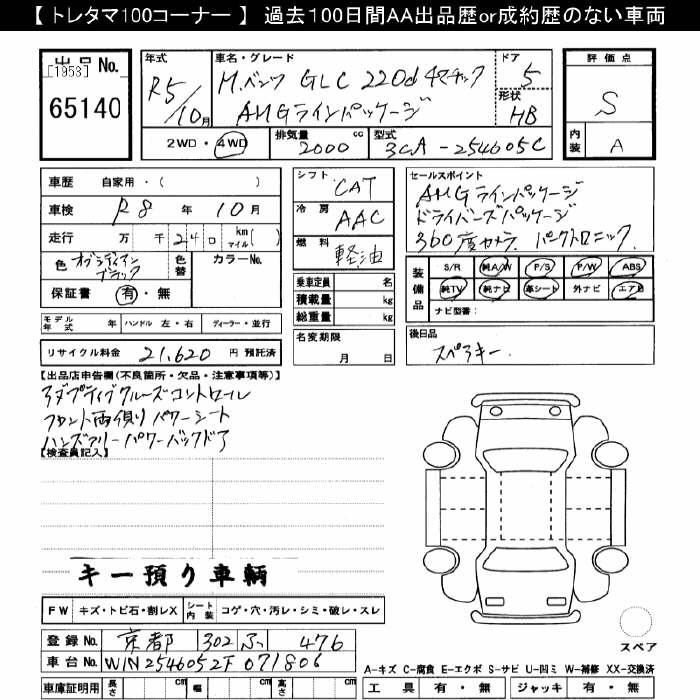 【 トレタマ100コーナー 】 過去100日間AA出品歴or成約歴のない車両
出品No.
[1953]
65140
年式
R5/10月
車名・グレード
M.ベンツ GLC 220d 4マチック
AMGラインパッケージ
ドア
5
形状
HB
評価点
S
内装
A
2WD・4WD
排気量
2000
cc
型式
3CA-254605C
車歴 自家用・( )
車検 R8 年 10 月
走行 万 千 240 km マイル ( )
色 オブシディアンブラック
色替
カラーNo.
保証書 有・無
モデル年式 年 ハンドル 左・右 ディーラー・並行
リサイクル料金 21,620 円 預託済
シフト CAT
冷房 AAC
燃料 軽油
乗車定員 名
積載量 kg
総重量 kg
名変期限
月 日
セールスポイント
AMGラインパッケージ
ドライバーズパッケージ
360度カメラ. パークトロニック.
装備品
S/R 純A/W P/S P/W ABS
純TV 純ナビ 革シート 外ナビ エアB
ナビ型番:
後日品
スペアキー.
【出品店申告欄(不良箇所・欠品・注意事項等)】
アダプティブクルーズコントロール
フロント両側り パワーシート
ハンズフリーパワーバックドア
【検査員記入】
キー預り車輌
FW キズ・トビ石・割レX シート内装 コゲ・穴・汚レ・シミ・破レ・スレ
登録No. 京都 302 ふ 476
車台No. W1N2546052F071806
車庫証明用 長さ cm 幅 cm 高さ cm
スペア
A-キズ C-腐食 E-エクボ S-サビ U-凹ミ W-補修 XX-交換済
工具 有・無 ジャッキ 有・無